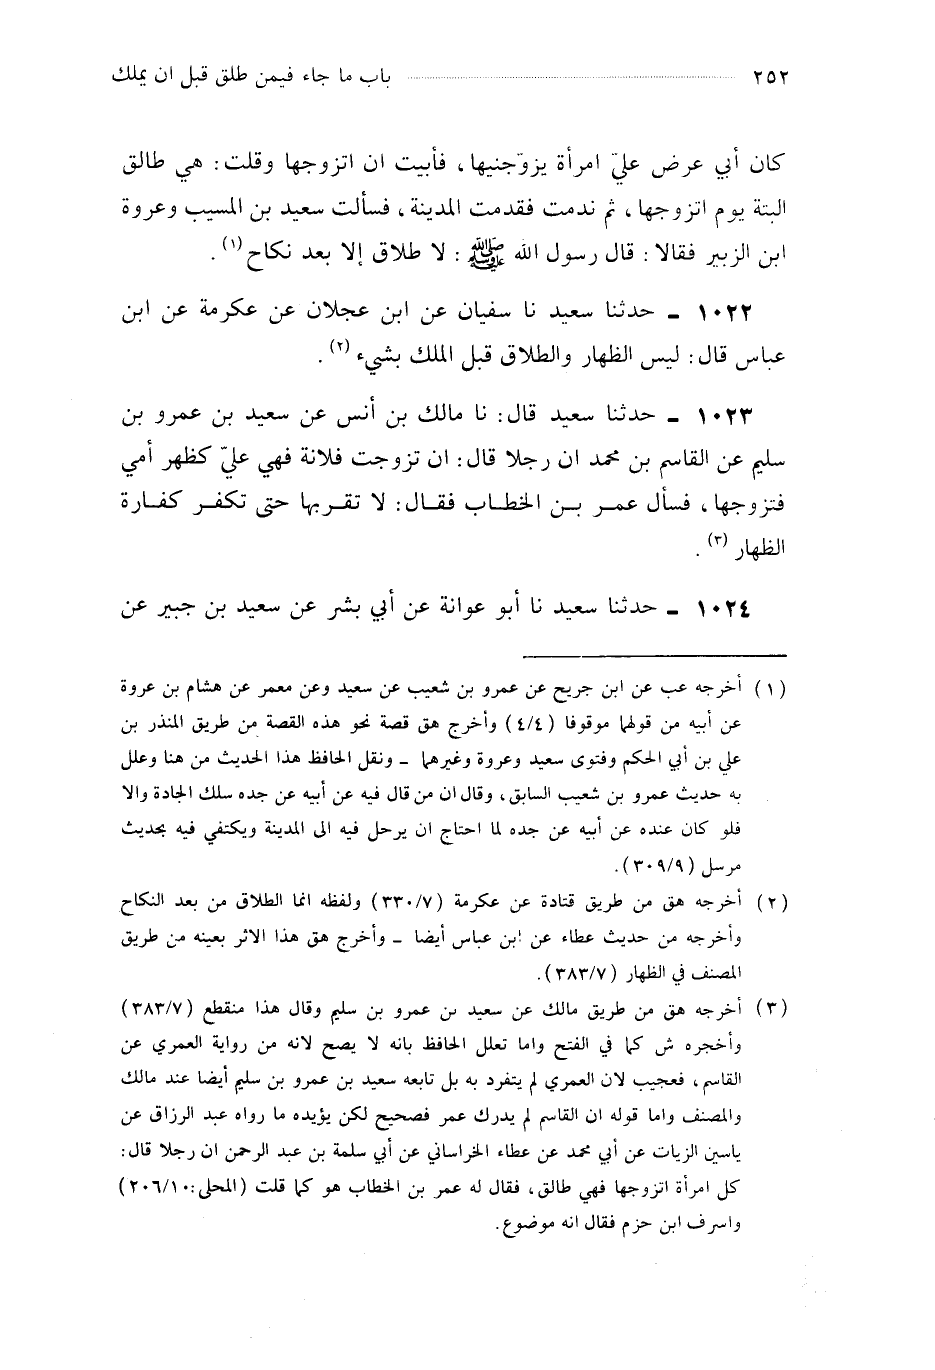 ٢٥٢ باب ما جاء فيمن طلق قبل ان يملك
كان أبي عرض عليّ امرأة يزوّجنيها، فأبيت ان اتزوجها وقلت: هي طالق
البتة يوم اتزوجها، ثم ندمت فقدمت المدينة، فسألت سعيد بن المسيب وعروة
ابن الزبير فقالا: قال رسول الله ﷺ: لا طلاق إلا بعد نكاح (١).
١٠٢٢ ـ حدثنا سعيد نا سفيان عن ابن عجلان عن عكرمة عن ابن
عباس قال: ليس الظهار والطلاق قبل الملك بشيء (٢).
١٠٢٣ ـ حدثنا سعيد قال: نا مالك بن أنس عن سعيد بن عمرو بن
سليم عن القاسم بن محمد ان رجلا قال: ان تزوجت فلانة فهي عليّ كظهر أمي
فتزوجها، فسأل عمر بن الخطاب فقال: لا تقربها حتى تكفر كفارة
الظهار (٣).
١٠٢٤ ـ حدثنا سعيد نا أبو عوانة عن أبي بشر عن سعيد بن جبير عن
(١) أخرجه عب عن ابن جريج عن عمرو بن شعيب عن سعيد وعن معمر عن هشام بن عروة
عن أبيه من قولهما موقوفا (٤/٤) وأخرج هق قصة نحو هذه القصة من طريق المنذر بن
علي بن أبي الحكم وفتوى سعيد وعروة وغيرهما ـ ونقل الحافظ هذا الحديث من هنا وعلل
به حديث عمرو بن شعيب السابق، وقال ان من قال فيه عن أبيه عن جده سلك الجادة والا
فلو كان عنده عن أبيه عن جده لما احتاج ان يرحل فيه الى المدينة ويكتفي فيه بحديث
مرسل (٣٠٩/٩).
(٢) أخرجه هق من طريق قتادة عن عكرمة (٣٣٠/٧) ولفظه انما الطلاق من بعد النكاح
وأخرجه من حديث عطاء عن ابن عباس أيضا ـ وأخرج هق هذا الاثر بعينه من طريق
المصنف في الظهار (٣٨٣/٧).
(٣) أخرجه هق من طريق مالك عن سعيد بن عمرو بن سليم وقال هذا منقطع (٣٨٣/٧)
وأخجره ش كما في الفتح واما تعلل الحافظ بانه لا يصح لانه من رواية العمري عن
القاسم، فعجيب لان العمري لم يتفرد به بل تابعه سعيد بن عمرو بن سليم أيضا عند مالك
والمصنف واما قوله ان القاسم لم يدرك عمر فصحيح لكن يؤيده ما رواه عبد الرزاق عن
ياسين الزيات عن أبي محمد عن عطاء الخراساني عن أبي سلمة بن عبد الرحمن ان رجلا قال:
كل امرأة اتزوجها فهي طالق، فقال له عمر بن الخطاب هو كما قلت (المحلى:٢٠٦/١٠)
واسرف ابن حزم فقال انه موضوع.